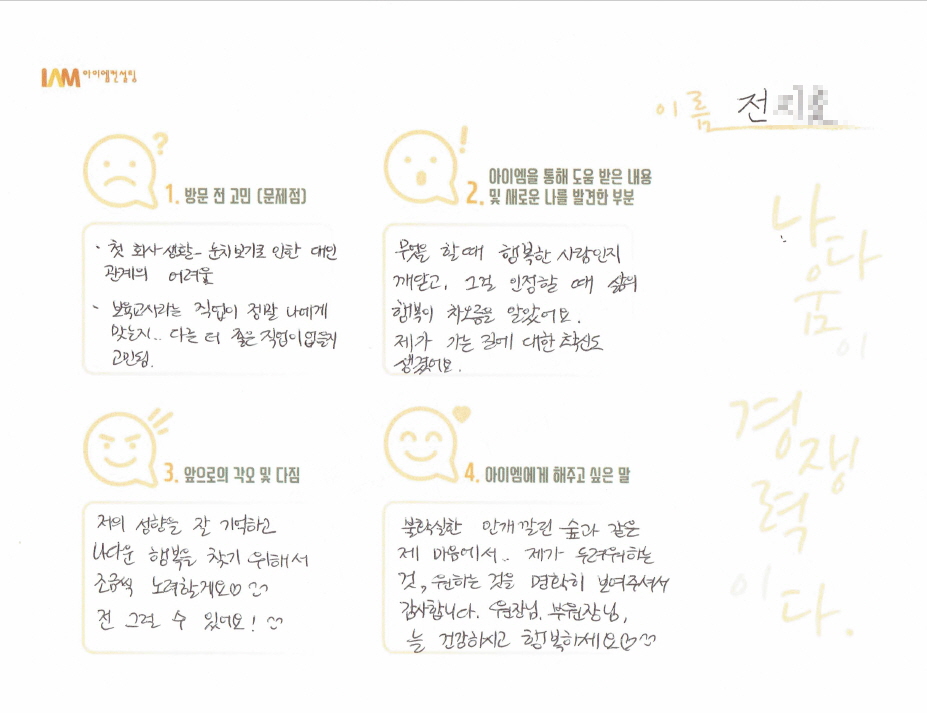 IAM 아이엠컨설팅
이름 전
1. 방문 전 고민 (문제점)
· 첫 회사생활 - 눈치보기로 인한 대인
관계의 어려움
· 보육교사라는 직업이 정말 나에게
맞는지.. 다른 더 좋은 직업이 없을지
고민됨.
2. 아이엠을 통해 도움 받은 내용
및 새로운 나를 발견한 부분
무엇을 할 때 행복한 사람인지
깨닫고, 그걸 인정할 때 삶의
행복이 차오름을 알았어요.
제가 가는 길에 대한 확신도
생겼어요.
3. 앞으로의 각오 및 다짐
저의 성향을 잘 기억하고
나다운 행복을 찾기 위해서
조금씩 노력할게요♡
전 그럴 수 있어요!
4. 아이엠에게 해주고 싶은 말
불확실한 안개 깔린 숲과 같은
제 마음에서.. 제가 두려워하는
것, 원하는 것을 명확히 보여주셔서
감사합니다. 원장님, 부원장님,
늘 건강하시고 행복하세요♡
나다움이
경쟁력이다.